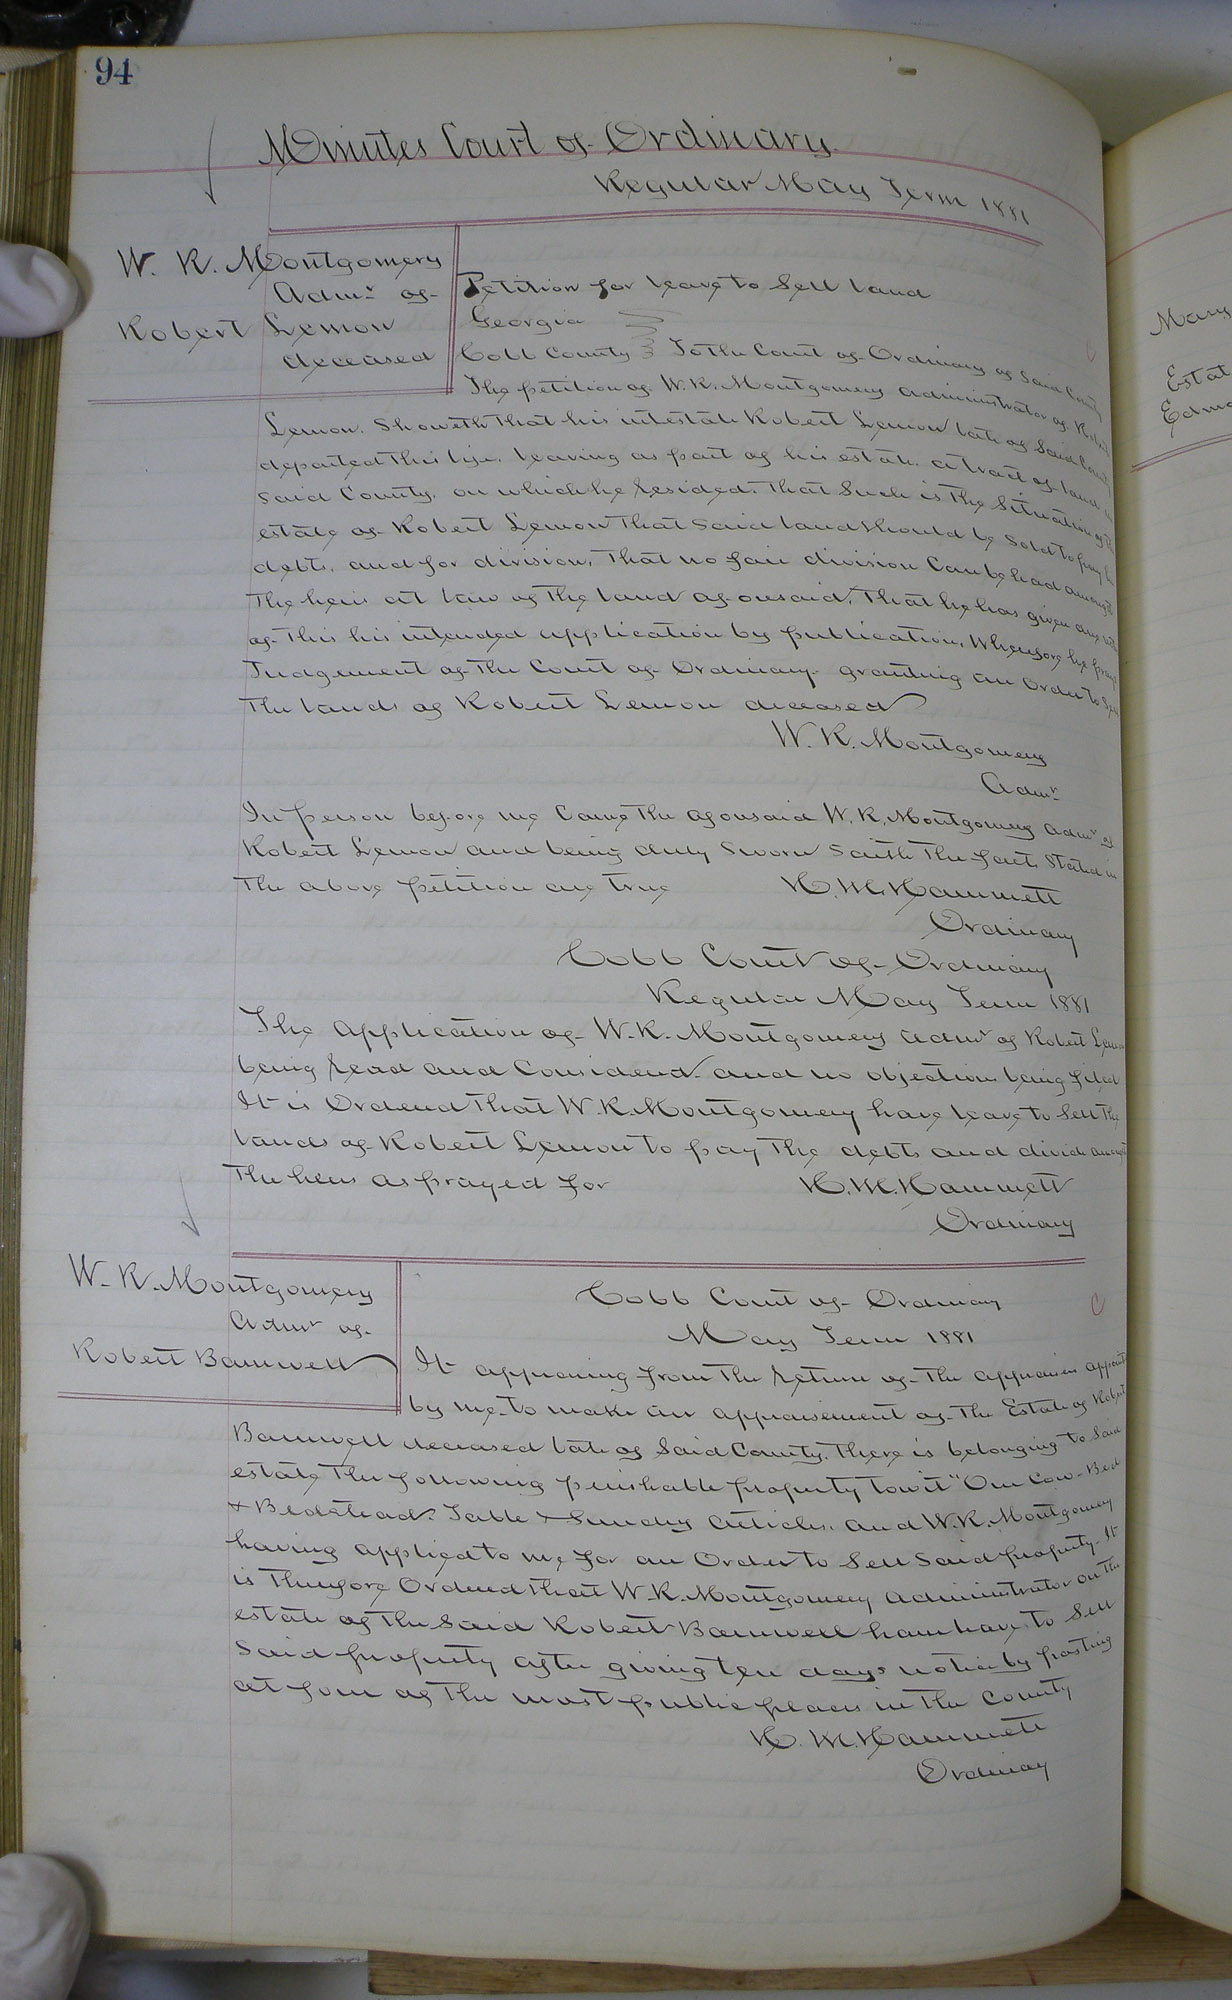 94
Minutes Court of Ordinary.
Regular May Term 1881
W. R. Montgomery
Admr of
Robert Lemon
deceased
Petition for leave to Sell land
Georgia
Cobb County To the Court of Ordinary of Said County
The petition of W. R. Montgomery administrator of Robert
Lemon. Showeth that his intestate Robert Lemon late of Said County
departed this life. leaving as part of his estate. a tract of land in
Said County. on which he resided. That Such is the Situation of the
estate of Robert Lemon that Said land should be Sold to pay his
debts. and for division. That no fair division Can be had amongst
the heirs at law of the land aforesaid. That he has given due notice
of this his intended application by publication. Wherefore he prays
Judgement of the Court of Ordinary. granting an Order to Sell
the lands of Robert Lemon deceased
W. R. Montgomery
Admr
In person before me Came the aforesaid W. R. Montgomery admr of
Robert Lemon and being duly Sworn Saith the facts Stated in
the above petition are true H. M. Hammett
Ordinary
Cobb Court of Ordinary
Regular May Term 1881
The application of W. R. Montgomery admr of Robert Lemon
being read and Considered and no objection being filed
It is Ordered that W. R. Montgomery have leave to Sell the
lands of Robert Lemon to pay the debts and divide amongst
the heirs as prayed for H. M. Hammett
Ordinary
W. R. Montgomery
Admr of
Robert Barnwell
Cobb Court of Ordinary
C
May Term 1881
It appearing from the return of the appraisers appointed
by me to make an appraisement of the Estate of Robert
Barnwell deceased late of Said County. There is belonging to Said
estate the following perishable property towit "One Cow - Bed
& Bedstead. Table & Sundry articles. and W. R. Montgomery
having applied to me for an Order to Sell Said property. It
is therefore Ordered that W. R. Montgomery administrator on the
estate of the Said Robert Barnwell have leave to Sell
Said property after giving ten days notice by posting
at four of the most public places in the County
H. M. Hammett
Ordinary
Mary
Estat
Edmo